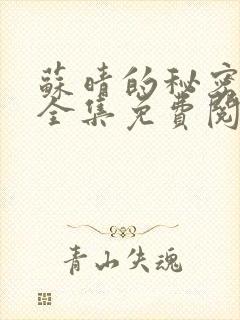 蘇晴的秘密
全集免費閱
青山失魂